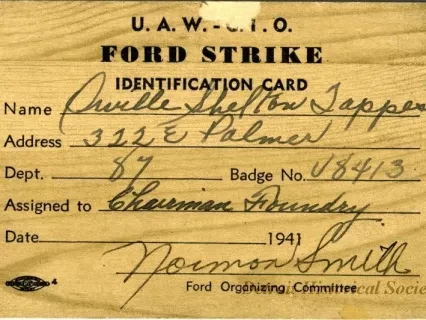 U.A.W.-C.I.O.
FORD STRIKE
IDENTIFICATION CARD
Name Orville Shelton Tappes
Address 322 E Palmer
Dept. 87 Badge No. V8413
Assigned to Chairman Foundry
Date 1941
Norman Smith
Ford Organizing Committee
Detroit Historical Socie
4